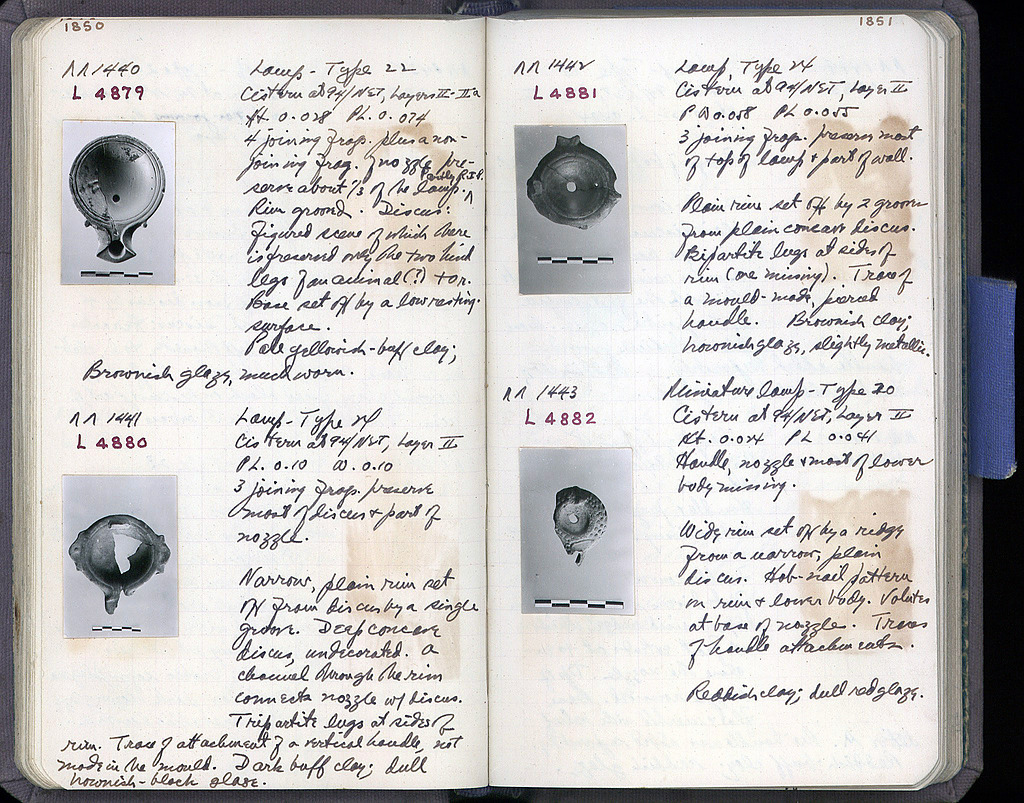 1850
ΛΛ 1440
L 4879
Lamp - Type 22
Cistern at 94/NET, Layers II-IIa
Ht. 0.028 PL. 0.074
4 joining frags. plus a non-
joining frag. of nozzle pre-
serve about 1/3 of the lamp.
Rim grooved. Discus:
figured scene of which there
is preserved only the two hind
legs of an animal (?) to r.
Base set off by a low resting
surface.
Pale yellowish-buff clay;
Brownish glaze, much worn.
ΛΛ 1441
L 4880
Lamp - Type 24
Cistern at 94/NET, Layer II
PL. 0.10 W. 0.10
3 joining frags. preserve
most of discus & part of
nozzle.
Narrow, plain rim set
off from discus by a single
groove. Deep concave
discus, undecorated. A
channel through the rim
connects nozzle w/ discus.
Tripartite lugs at sides of
rim. Trace of attachment of a vertical handle, not
made in the mould. Dark buff clay; dull
brownish-black glaze.
1851
ΛΛ 1442
L 4881
Lamp, Type 24
Cistern at 94/NET, Layer II
P W 0.058 PL 0.055
3 joining frags. preserve most
of top of lamp & part of wall.
Plain rim set off by 2 grooves
from plain concave discus.
Bipartite lugs at sides of
rim (one missing). Trace of
a mould-made, pierced
handle. Brownish clay;
brownish glaze, slightly metallic.
ΛΛ 1443
L 4882
Miniature lamp - Type 20
Cistern at 94/NET, Layer II
Ht. 0.024 PL 0.041
Handle, nozzle & most of lower
body missing.
Wide rim set off by a ridge
from a narrow, plain
discus. Hob-nail pattern
on rim & lower body. Volutes
at base of nozzle. Traces
of handle attachments.
Reddish clay; dull red glaze.